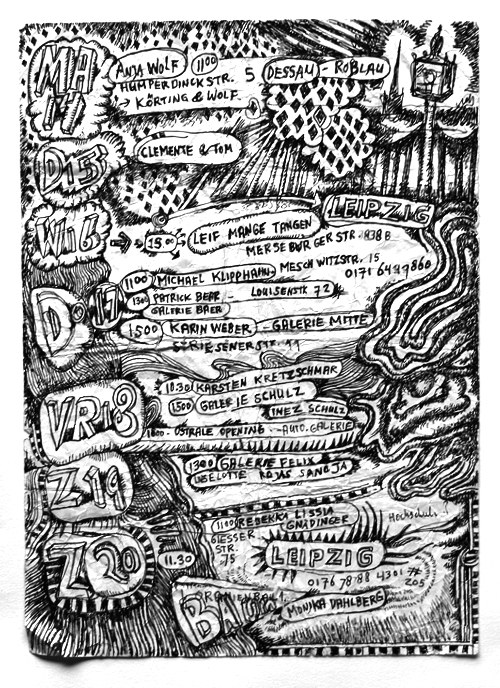 MA 14
ANJA WOLF 11:00
HUMPERDINCKSTR. 5 DESSAU - ROßLAU
→ KÖRTING & WOLF
DI 15
CLEMENTE & TOM
WI 16
LEIPZIG
15.00 LEIF MANGE TANGEN
MERSEBURGERSTR.
DO 17
1100 MICHAEL KLIPPHAHN MESCHWITZSTR. 15
1300 PATRICK BEAR - LOUISENSTR 72
GALERIE BAER
1500 KARIN WEBER - GALERIE MITTE
STRIESENERSTR.
VR 18
10.30 KARSTEN KRETZSCHMAR
1500 GALERIE SCHULZ
INEZ SCHULZ
1800 - OSTRALE OPENING - AUTO.GALERIE
Z 19
1300 GALERIE FELIX
LISELOTTE ROJAS SANOJA
Z 20
1100 REBEKKA LISSIA
GNÄDINGER
Hochschul
STR.
75
11.30 LEIPZIG
MONIKA DAHLBERG